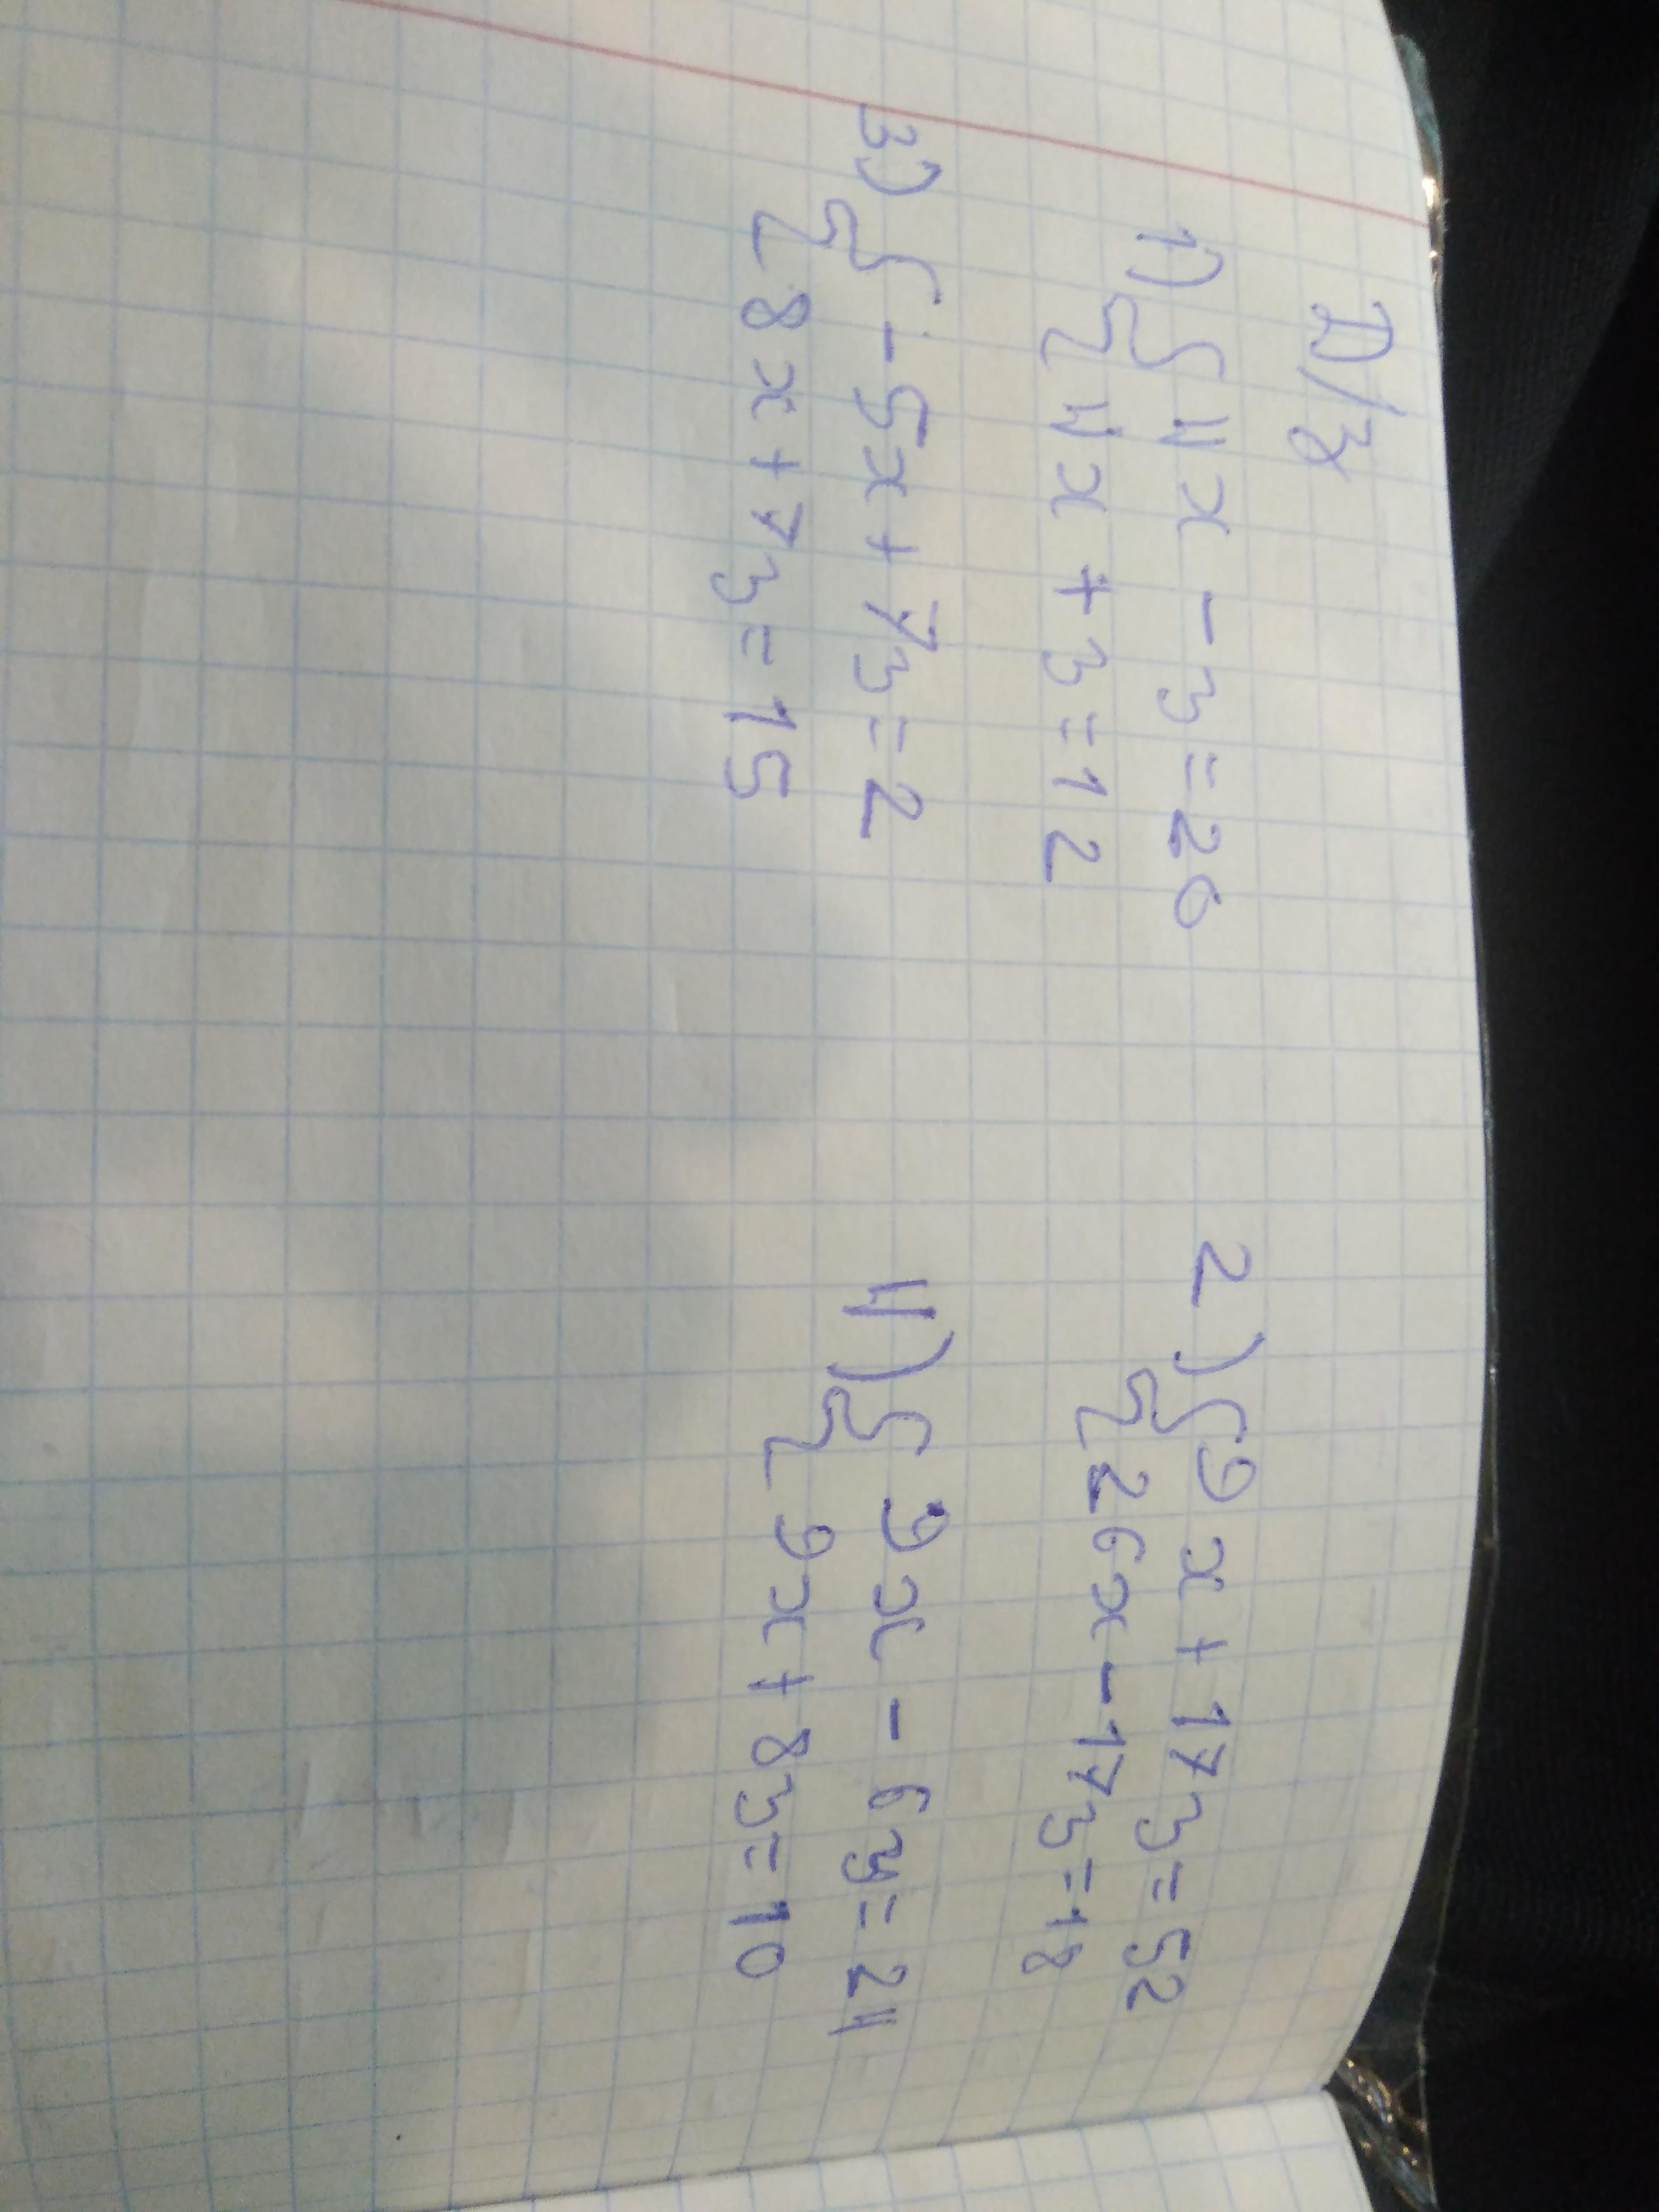 Д/з
1) { 4x - y = 20
4x + y = 12
2) { 9x + 17y = 52
26x - 17y = 18
3) { -5x + 7y = 2
8x + 7y = 15
4) { 9x - 6y = 24
9x + 8y = 10